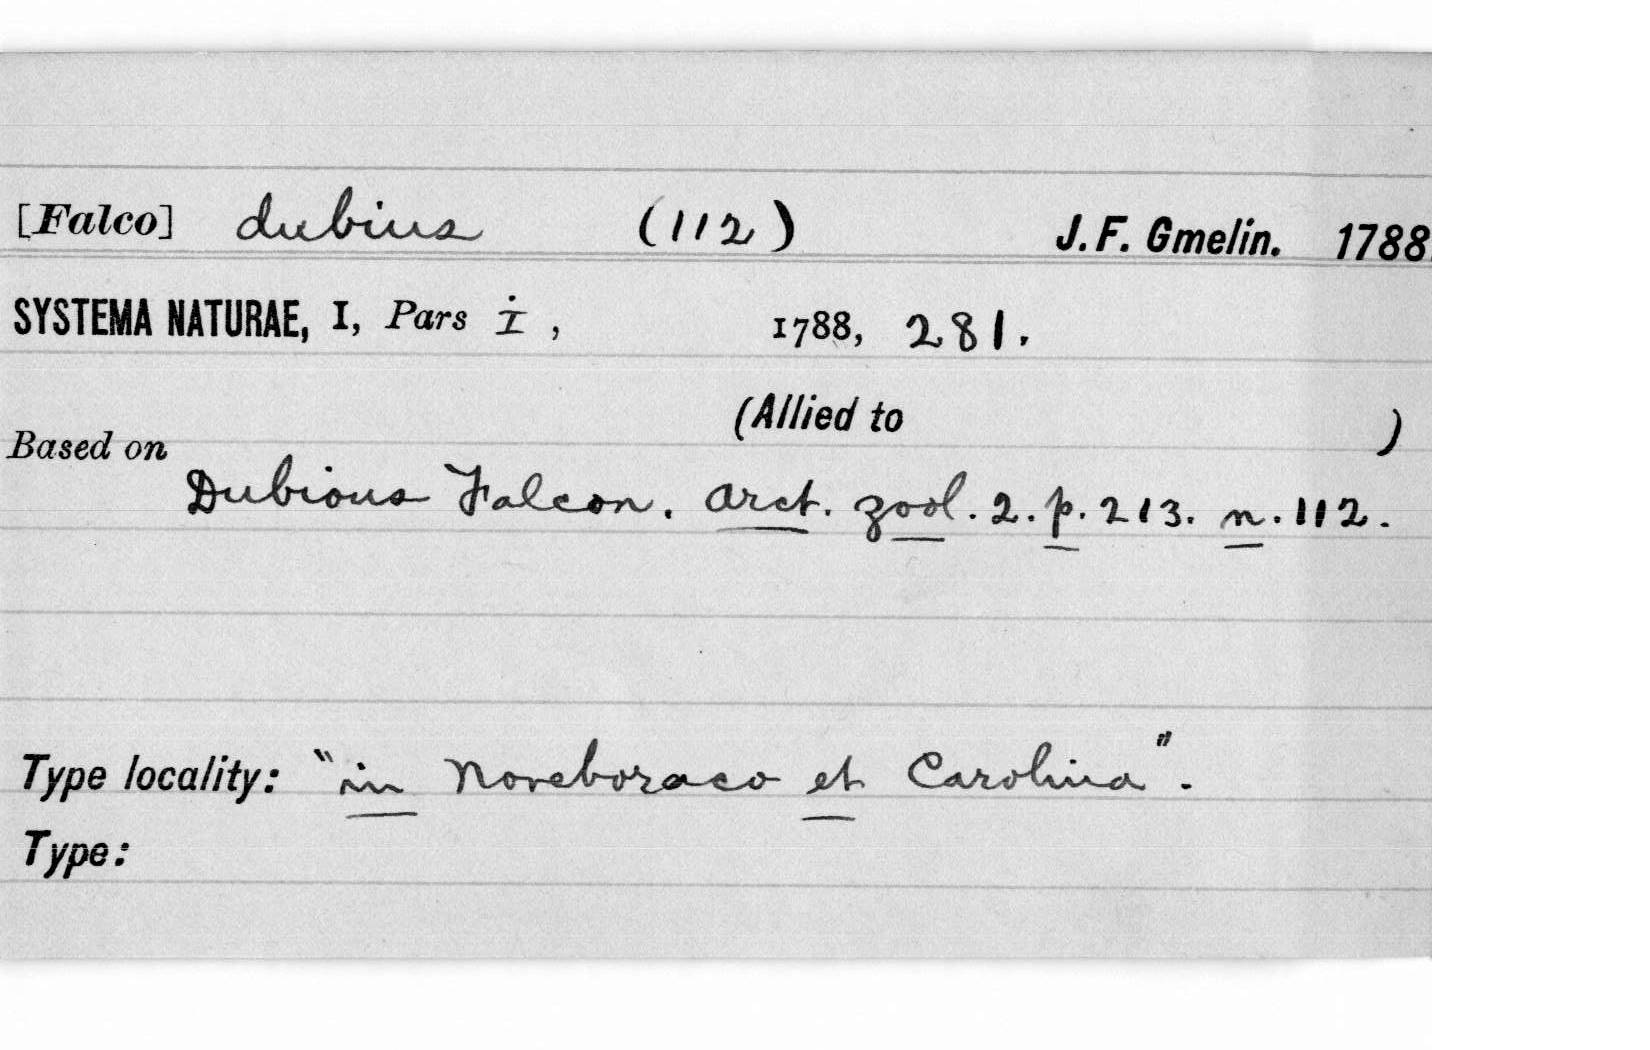 [Falco] dubius (112) J. F. Gmelin. 1788.
SYSTEMA NATURAE, I, Pars i, 1788, 281.
(Allied to )
Based on
Dubious Falcon. Arct. zool. 2. p. 213. n. 112.
Type locality: "in Noveboraco et Carolina".
Type: